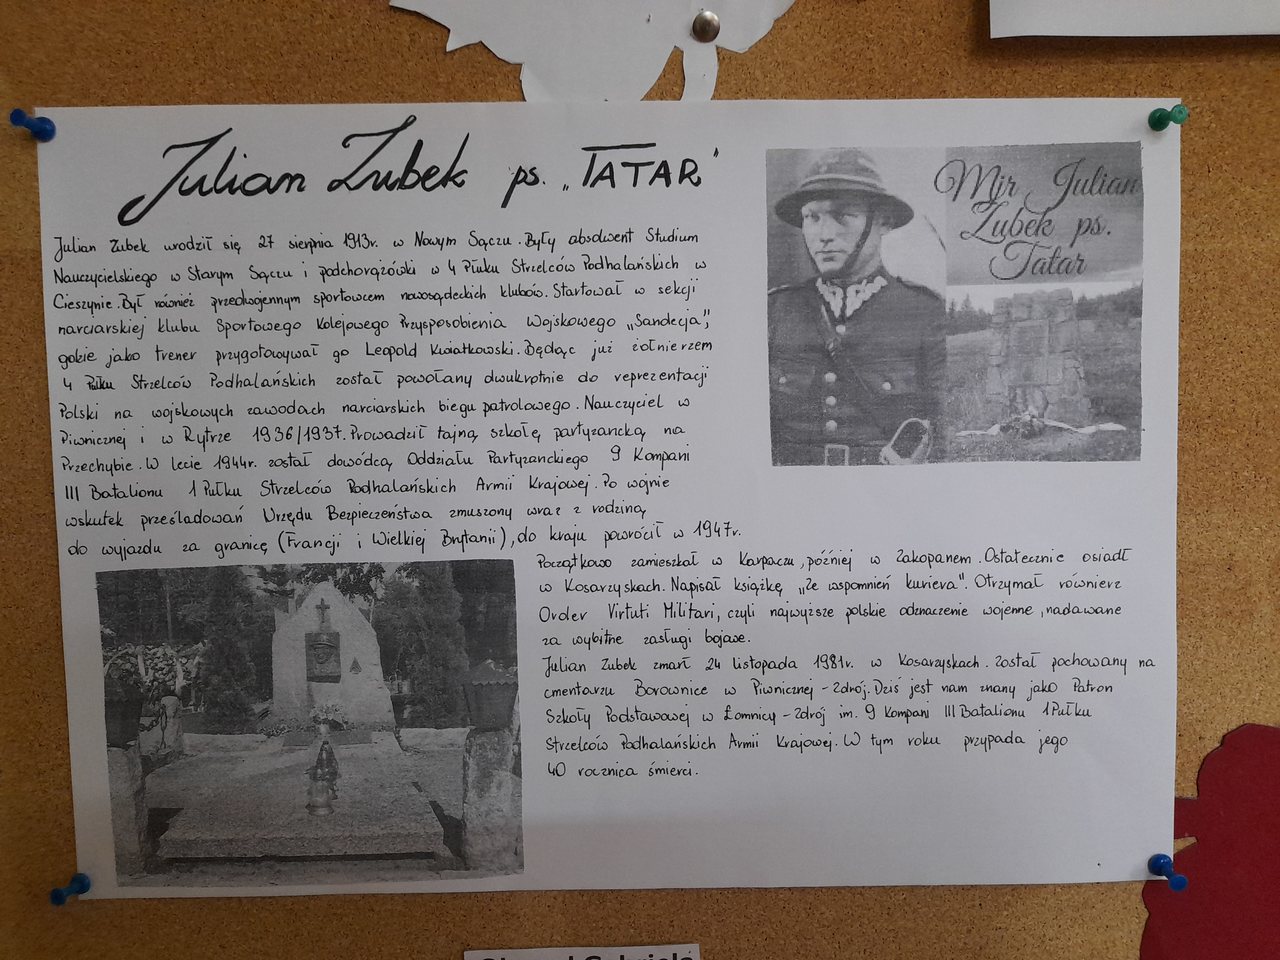 Julian Zubek ps. „TATAR"
Julian Zubek urodził się 27 sierpnia 1913r. w Nowym Sączu. Były absolwent Studium
Nauczycielskiego w Starym Sączu i podchorążówki w 4 Pułku Strzelców Podhalańskich w
Cieszynie. Był również przedwojennym sportowcem nowosądeckich klubów. Startował w sekcji
narciarskiej klubu Sportowego Kolejowego Przysposobienia Wojskowego „Sandecja",
gdzie jako trener przygotowywał go Leopold Kwiatkowski. Będąc już żołnierzem
4 Pułku Strzelców Podhalańskich został powołany dwukrotnie do reprezentacji
Polski na wojskowych zawodach narciarskich biegu patrolowego. Nauczyciel w
Piwnicznej i w Rytrze 1936/1937. Prowadził tajną szkołę partyzancką na
Przechybie. W lecie 1944r. został dowódcą Oddziału Partyzanckiego 9 Kompani
III Batalionu 1 Pułku Strzelców Podhalańskich Armii Krajowej. Po wojnie
wskutek prześladowań Urzędu Bezpieczeństwa zmuszony wraz z rodziną
do wyjazdu za granicę (Francji i Wielkiej Brytanii), do kraju powrócił w 1947r.
Początkowo zamieszkał w Karpaczu, później w Zakopanem. Ostatecznie osiadł
w Kosarzyskach. Napisał książkę „Ze wspomnień kuriera". Otrzymał równierz
Order Virtuti Militari, czyli najwyższe polskie odznaczenie wojenne, nadawane
za wybitne zasługi bojowe.
Julian Zubek zmarł 24 listopada 1981r. w Kosarzyskach. Został pochowany na
cmentarzu Borownice w Piwnicznej-Zdrój. Dziś jest nam znany jako Patron
Szkoły Podstawowej w Łomnicy-Zdrój im. 9 Kompani III Batalionu 1 Pułku
Strzelców Podhalańskich Armii Krajowej. W tym roku przypada jego
40 rocznica śmierci.
Mjr Julian
Zubek ps.
Tatar